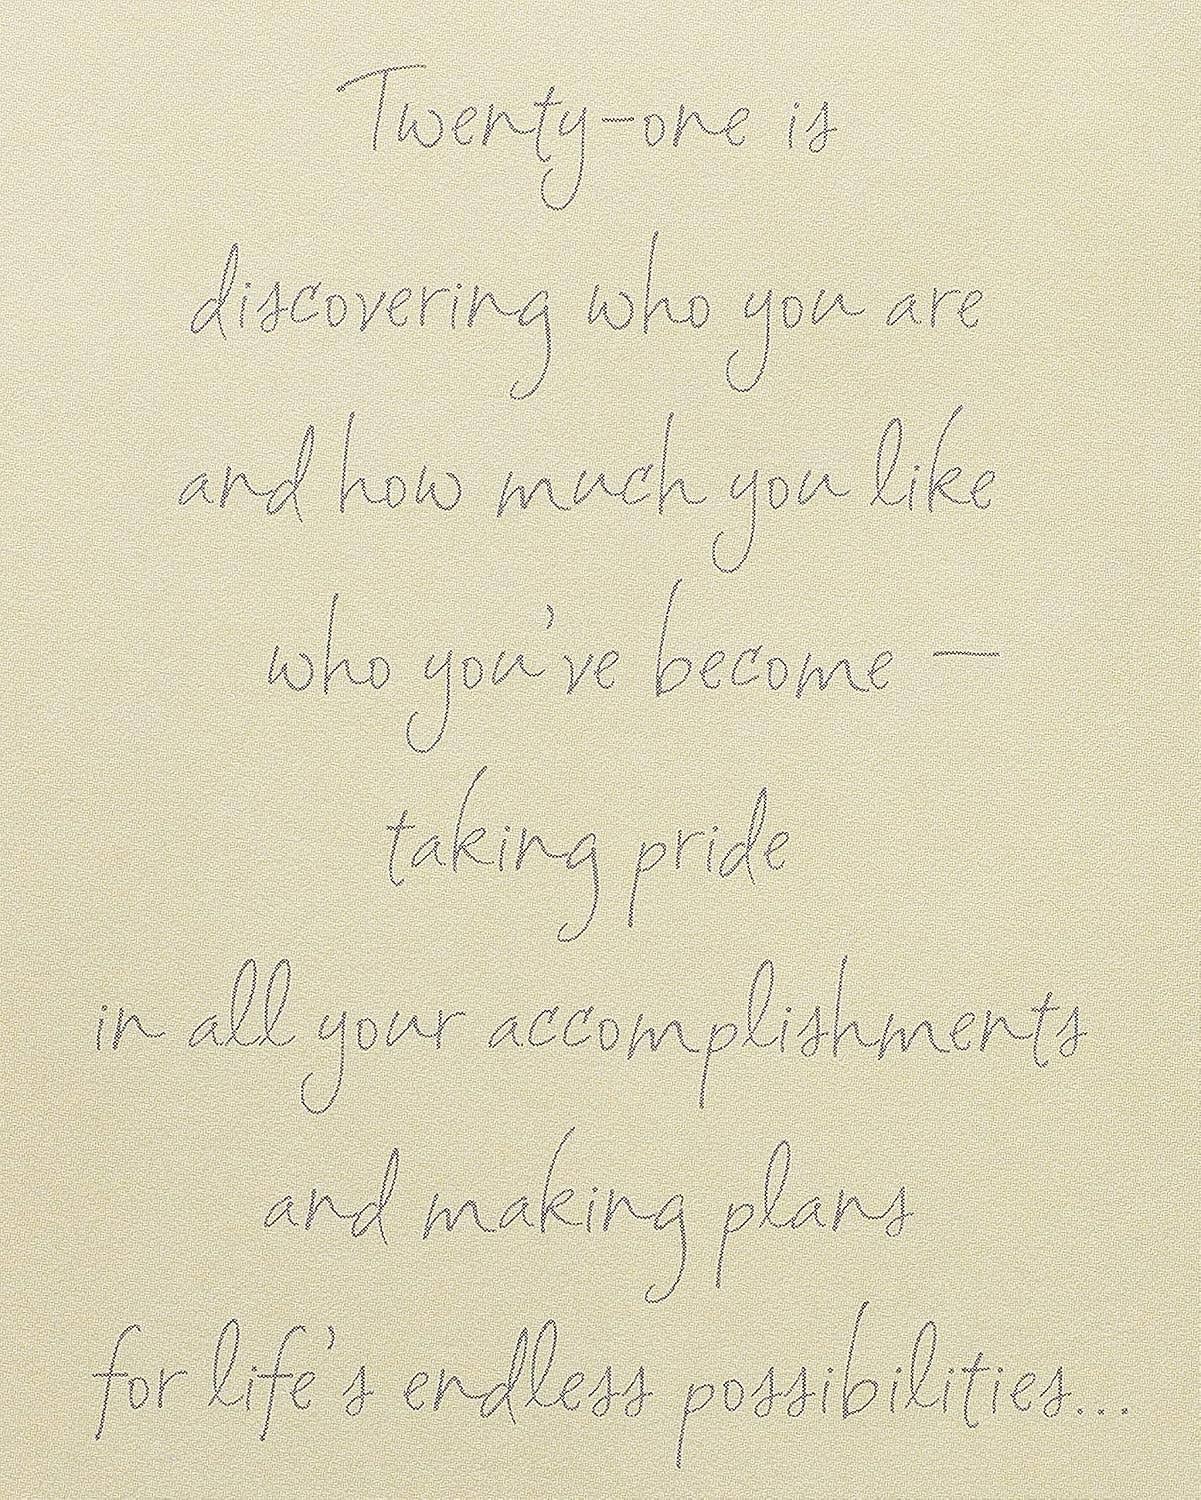 Twenty-one is
discovering who you are
and how much you like
who you've become —
taking pride
in all your accomplishments
and making plans
for life's endless possibilities...